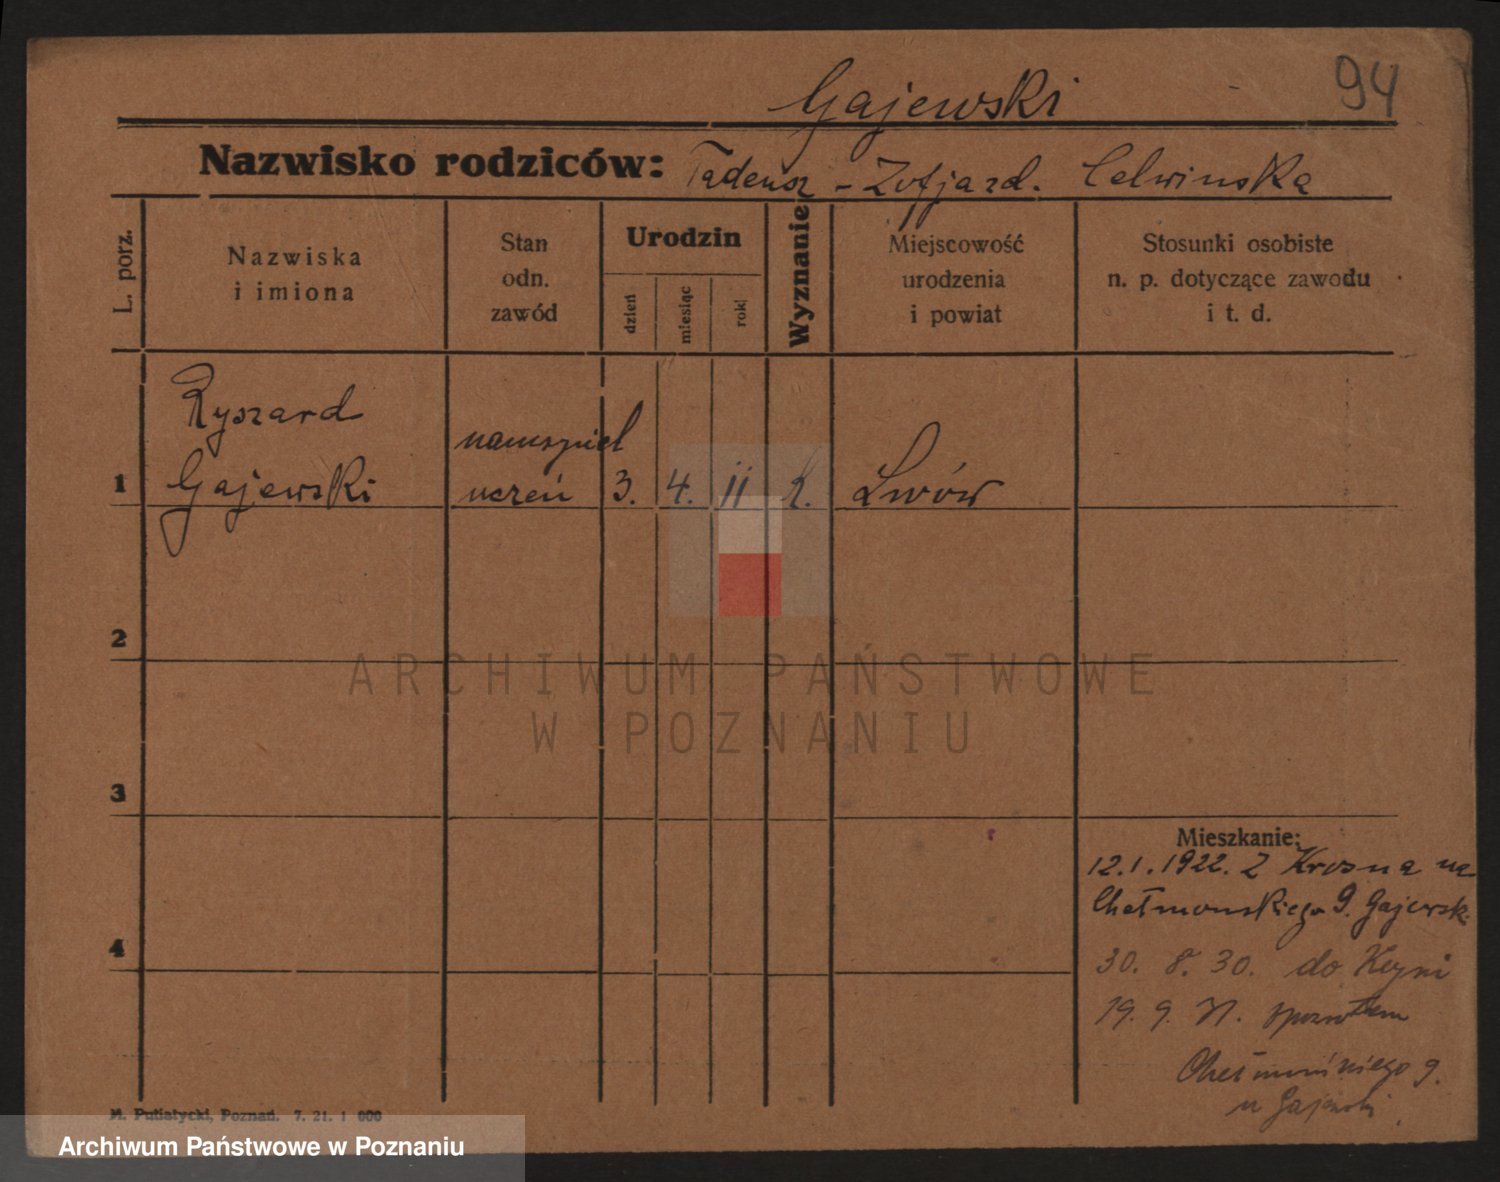 94
Gajewski
Nazwisko rodziców: Tadeusz - Zofja zd. Celwinska
L. porz.
Nazwiska
i imiona
Stan
odn.
zawód
Urodzin
dzień
miesiąc
rok
Wyznanie
Miejscowość
urodzenia
i powiat
Stosunki osobiste
n. p. dotyczące zawodu
i t. d.
Ryszard
1 Gajewski uczeń 3. 4. 11 Lwów
2
3
4
Mieszkanie:
12.1.1922. Z Krosna na
Chełmonskiego 9. Gajewsk.
30. 8. 30. do Kcyni
19. 9. 31.
9.
u Gajewski
M. Putiatycki, Poznań. 7. 21. 1 000
ARCHIWUM PAŃSTWOWE
W POZNANIU
Archiwum Państwowe w Poznaniu